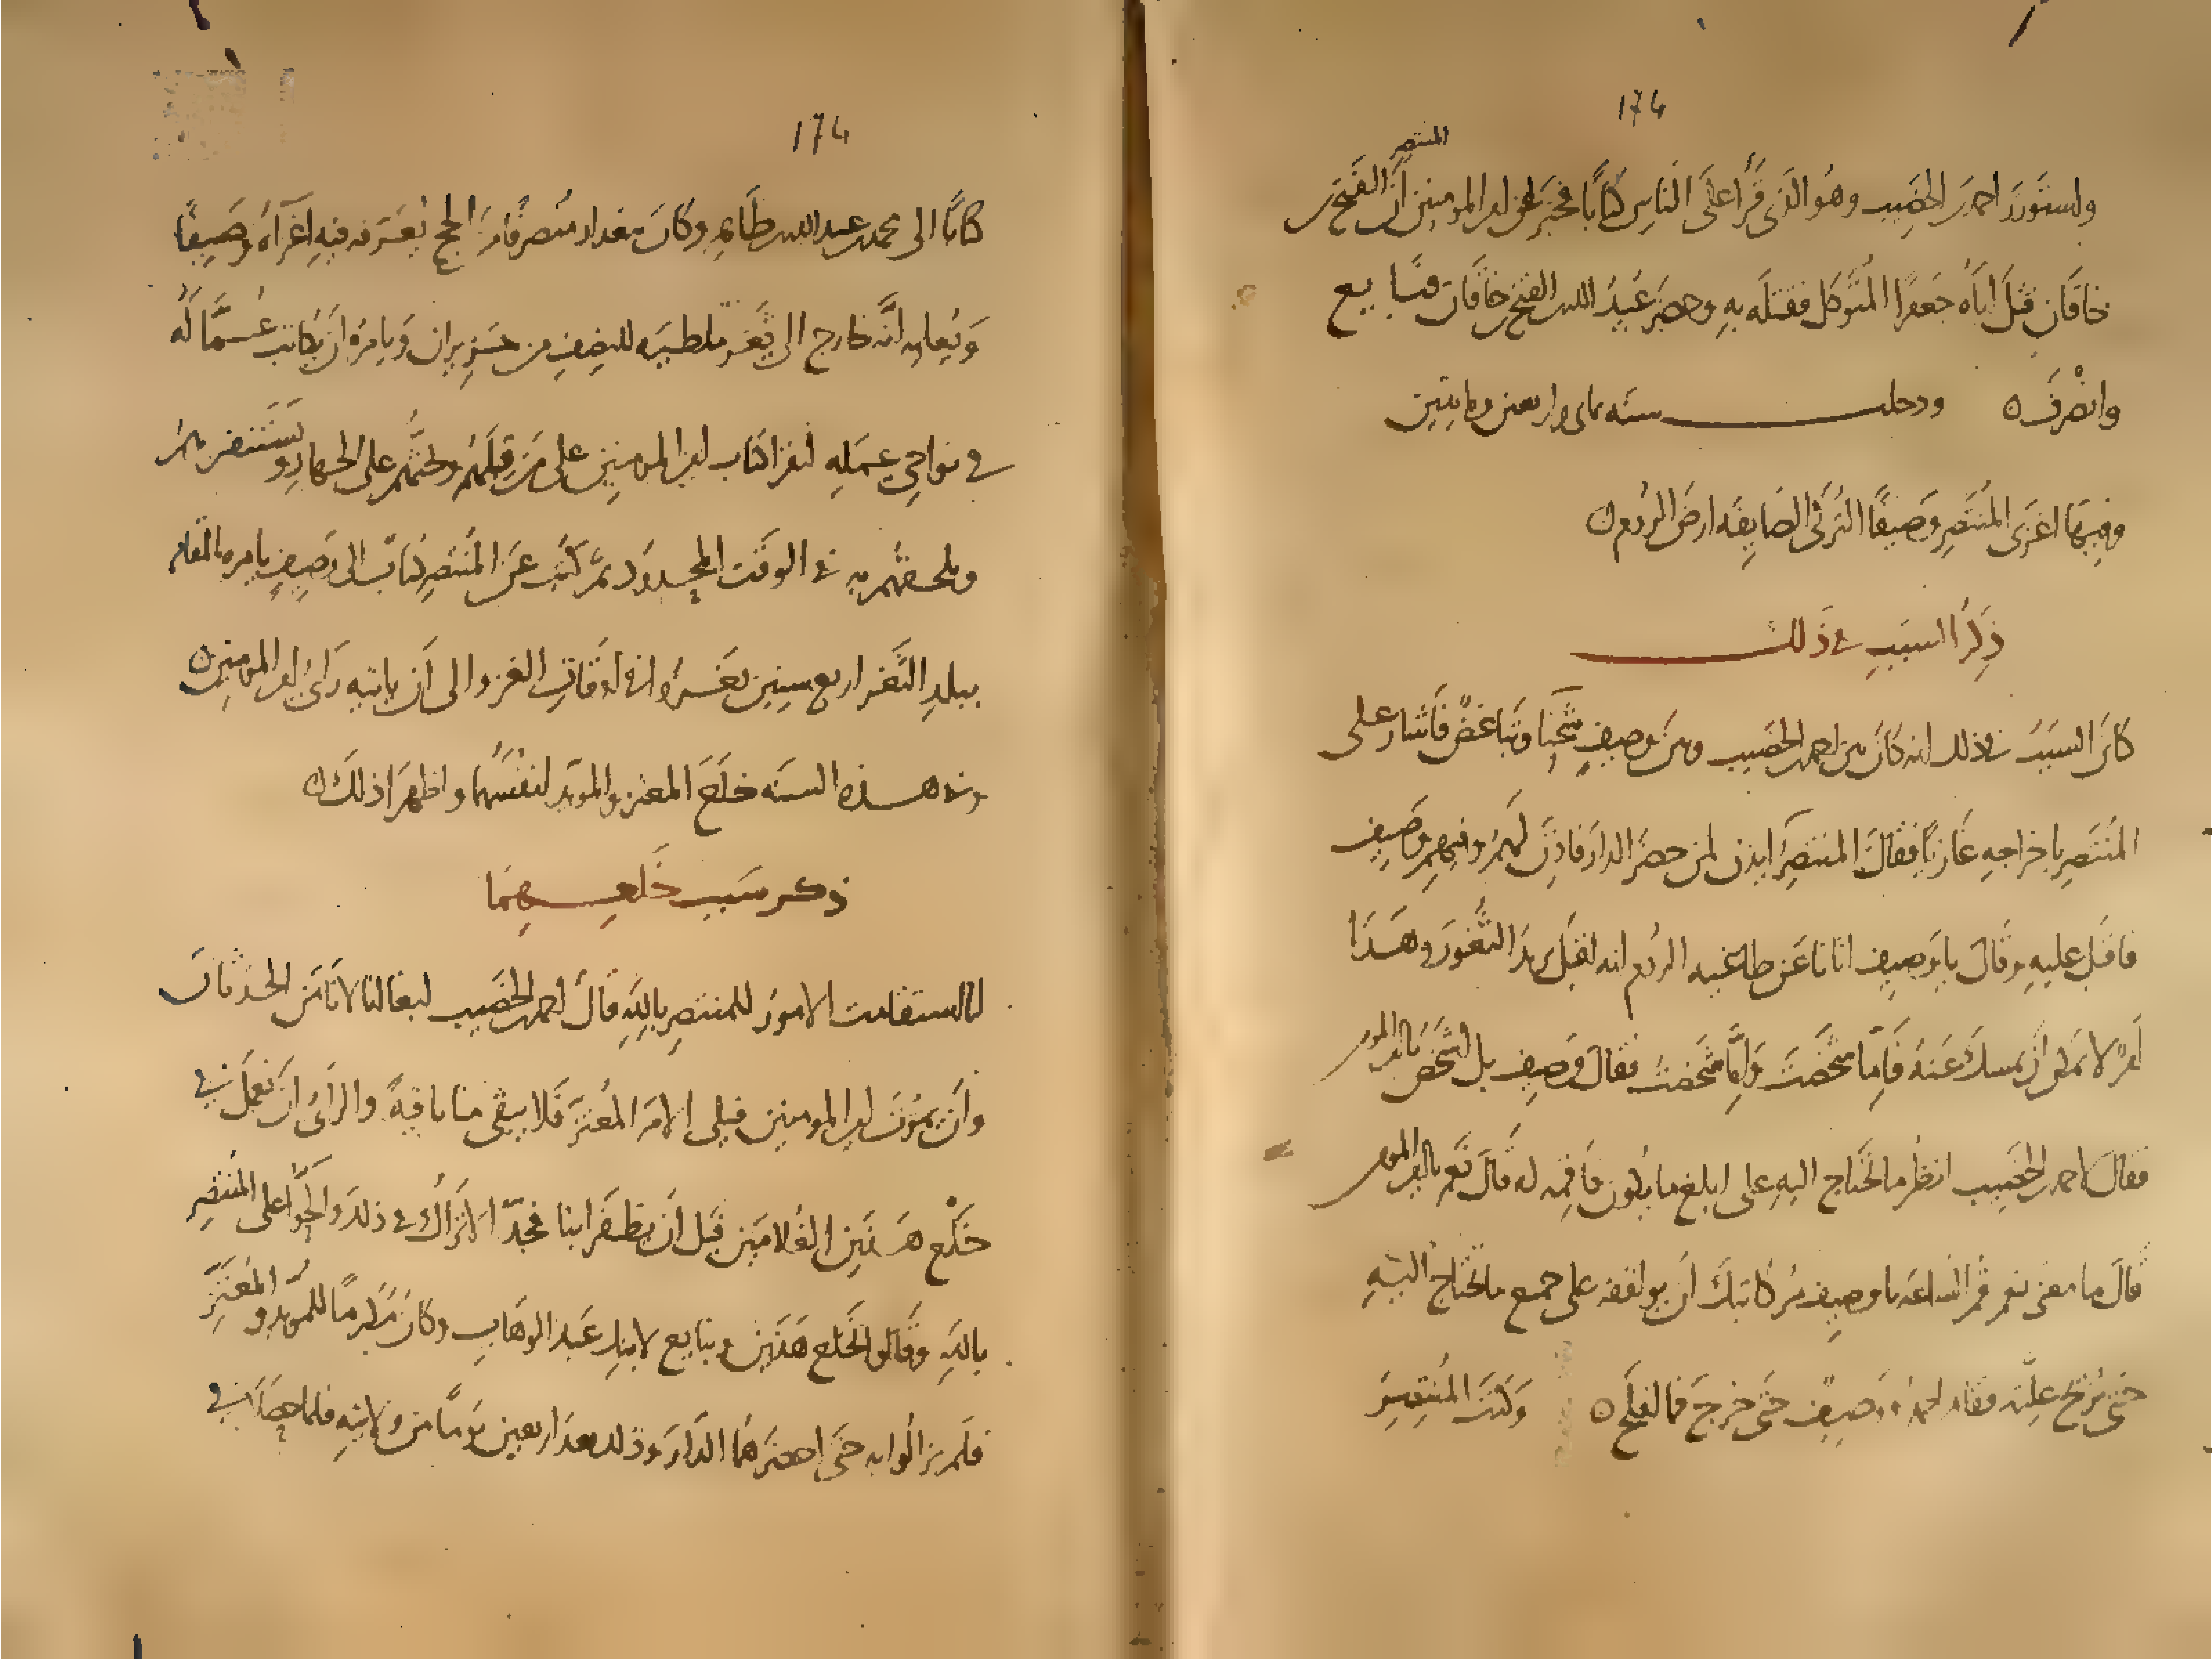 174
المنتصر
واستوزر احمد بن الخصيب وهو الذى قرأ على الناس كتابًا يخبر عن امير المومنين ان الفتح بن
خاقان قتل اباه جعفرا المتوكل فقتله به وحضر عبيد الله بن الفتح بن خاقان فبايع
وانصرف ه ودخلت سنه ثمان واربعين ومايتين
وفيها اغزى المنتصر وصيفًا التركى الصايفه ارض الروم ه
ذكر السبب فى ذلك
كان السبب فى ذلك انه كان بين احمد بن الخصيب وبين وصيف شحنا وتباغض فاشار على
المنتصر باخراجه غازيًا فقال المنتصر ايذن لمن حضر الدار فاذن لهم وفيهم وصيف
فاقبل عليه وقال يا وصيف اتانا عن طاغيه الروم انه اقبل يريد الثغور وهذا
امر لا يمكن ان يمسك عنه فاما شخصت واما شخصت فقال وصيف بل اشخص يا امير المومنين
فقال احمد بن الخصيب انظر ما تحتاج اليه على ابلغ ما يكون فاقمه له قال نعم يا امير المومنين
قال ما معنى نعم قم الساعه يا وصيف مر كاتبك ان يوافقه على جميع ما تحتاج اليه
حتى يزيح علته فقام احمد ووصيف حتى خرج فما افلح ه وكتب المنتصر
174
كتابًا الى محمد بن عبد الله بن طاهر وكان ببغداد منصرفًا من الحج يعرفه فيه اغزاه وصيفًا
ويعلمه انه خارج الى ثغر ملطيه للنصف من حزيران ويامره ان يكاتب عماله
فى نواحى عمله ليقرا كتاب امير المومنين على من قبلهم ويحثهم على الجهاد ويستنفرهم
ويلحقهم به فى الوقت المحدود ثم كتب عن المنتصر كتاب الى وصيف يامره بالمقام
ببلد الثغر اربع سنين يغزوا فى اوقات الغزو الى ان ياتيه راى امير المومنين ه
وفى هذه السنه خلع المعتز والمويد انفسهما واظهرا ذلك ه
ذكر سبب خلعهما
لما استقامت الامور للمنتصر بالله قال احمد بن الخصيب لبغا انا لا نامن الحدثان
وان يموت امير المومنين فيلى الامر المعتز فلا يبقى منا باقيه والراى ان نعمل فى
خلع هذين الغلامين قبل ان يظفرا بنا فجد الاتراك فى ذلك والحوا على المنتصر
بالله وقالوا نخلع هذين ونبايع لابنك عبد الوهاب وكان مكرمًا للمويد والمعتز
فلم يزالوا به حتى احضرهما الدار وذلك بعد اربعين يومًا من ولايته فلما حصلا فى